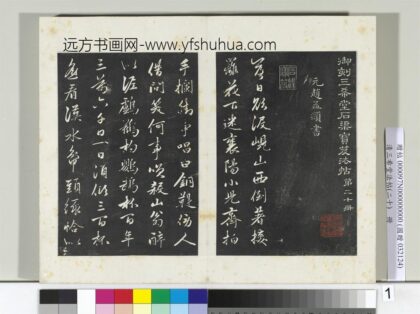 远方书画网-www.yfshuhua.com
御刻三希堂石渠寶笈法帖第二十冊
元趙孟頫書
落日欲没峴山西倒著接
䍦花下迷襄陽小兒齊拍
手攔街争唱白銅鞮傍人
借問笑何事笑殺山翁醉
似泥鸕鶿杓鸚鵡杯百年
三萬六千日一日須傾三百杯
遥看漢水鴨頭緑恰似
1